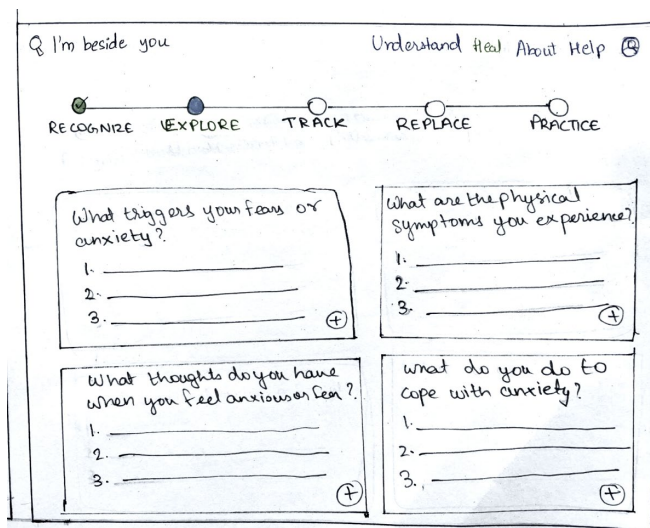 I'm beside you
Understand Heal About Help
RECOGNIZE EXPLORE TRACK REPLACE PRACTICE
What triggers your fears or
anxiety?
1.
2.
3.
+
What are the physical
symptoms you experience?
1.
2.
3.
+
What thoughts do you have
when you feel anxious or fear?
1.
2.
3.
+
what do you do to
cope with anxiety?
1.
2.
3.
+